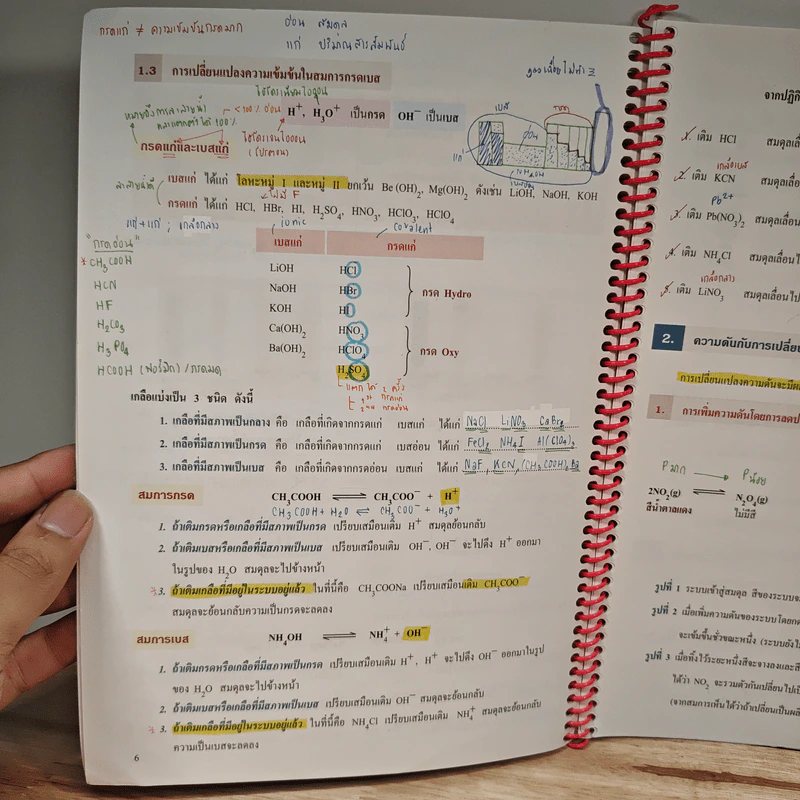 กรดแก่ ≠ ความเข้มข้นกรดมาก
อ่อน สมดุล
แก่ ปริมาณสารสัมพันธ์
1.3 การเปลี่ยนแปลงความเข้มข้นในสมการกรดเบส
ไฮโดรเนียมไอออน
<100% อ่อน
H⁺, H₃O⁺ เป็นกรด OH⁻ เป็นเบส
ไฮโดรเจนไอออน
(โปรตอน)
กรดแก่และเบสแก่
เบส
กรด
แก่
อ่อน
NH₄OH
เบสแก่ ได้แก่ โลหะหมู่ I และหมู่ II ยกเว้น Be(OH)₂, Mg(OH)₂ ดังเช่น LiOH, NaOH, KOH
ไม่มี F
กรดแก่ ได้แก่ HCl, HBr, HI, H₂SO₄, HNO₃, HClO₃, HClO₄
แก่+แก่ ; เกลือกลาง
ionic covalent
เบสแก่ กรดแก่
"กรดอ่อน"
CH₃COOH
HCN
HF
H₂CO₃
H₃PO₄
HCOOH (ฟอร์มิก) /กรดมด
LiOH HCl
NaOH HBr
KOH HI
กรด Hydro
Ca(OH)₂ HNO₃
Ba(OH)₂ HClO₄
H₂SO₄
กรด Oxy
แตกได้ 2 ครั้ง
กรดแก่
กรดอ่อน
เกลือแบ่งเป็น 3 ชนิด ดังนี้
1. เกลือที่มีสภาพเป็นกลาง คือ เกลือที่เกิดจากกรดแก่ เบสแก่ ได้แก่ NaCl LiNO₃ CaBr₂
2. เกลือที่มีสภาพเป็นกรด คือ เกลือที่เกิดจากกรดแก่ เบสอ่อน ได้แก่ FeCl₂ NH₄I Al(ClO₄)₃
3. เกลือที่มีสภาพเป็นเบส คือ เกลือที่เกิดจากกรดอ่อน เบสแก่ ได้แก่ NaF, KCN, (CH₃COO)₂Ba
สมการกรด CH₃COOH ⇌ CH₃COO⁻ + H⁺
CH₃COOH + H₂O ⇌ CH₃COO⁻ + H₃O⁺
1. ถ้าเติมกรดหรือเกลือที่มีสภาพเป็นกรด เปรียบเสมือนเติม H⁺ สมดุลย้อนกลับ
2. ถ้าเติมเบสหรือเกลือที่มีสภาพเป็นเบส เปรียบเสมือนเติม OH⁻, OH⁻ จะไปดึง H⁺ ออกมา
ในรูปของ H₂O สมดุลจะไปข้างหน้า
3. ถ้าเติมเกลือที่มีอยู่ในระบบอยู่แล้ว ในที่นี้คือ CH₃COONa เปรียบเสมือนเติม CH₃COO⁻
สมดุลจะย้อนกลับความเป็นกรดจะลดลง
สมการเบส NH₄OH ⇌ NH₄⁺ + OH⁻
1. ถ้าเติมกรดหรือเกลือที่มีสภาพเป็นกรด เปรียบเสมือนเติม H⁺, H⁺ จะไปดึง OH⁻ ออกมาในรูป
ของ H₂O สมดุลจะไปข้างหน้า
2. ถ้าเติมเบสหรือเกลือที่มีสภาพเป็นเบส เปรียบเสมือนเติม OH⁻ สมดุลจะย้อนกลับ
3. ถ้าเติมเกลือที่มีอยู่ในระบบอยู่แล้ว ในที่นี้คือ NH₄Cl เปรียบเสมือนเติม NH₄⁺ สมดุลจะย้อนกลับ
ความเป็นเบสจะลดลง
6
จากปฏิกิ
1. เติม HCl สมดุลเลื่อ
เกลือเบส
2. เติม KCN สมดุลเลื่อ
Pb²⁺
3. เติม Pb(NO₃)₂ สมดุลเลื่อน
4. เติม NH₄Cl สมดุลเลื่อนไ
เกลือกลาง
5. เติม LiNO₃ สมดุลเลื่อนไป
2. ความดันกับการเปลี่ยน
การเปลี่ยนแปลงความดันจะมีผ
1. การเพิ่มความดันโดยการลดป
Pมาก Pน้อย
2NO₂(g) ⇌ N₂O₄(g)
สีน้ำตาลแดง ไม่มีสี
รูปที่ 1 ระบบเข้าสู่สมดุล สีของระบบจะ
รูปที่ 2 เมื่อเพิ่มความดันของระบบโดยกด
จะเข้มขึ้นชั่วขณะหนึ่ง (ระบบยังไ
รูปที่ 3 เมื่อทิ้งไว้ระยะหนึ่งสีจะจางลงและสี
ได้ว่า NO₂ จะรวมตัวกันเปลี่ยนไปเ
(จากสมการเห็นได้ว่าถ้าเปลี่ยนเป็นผลิ